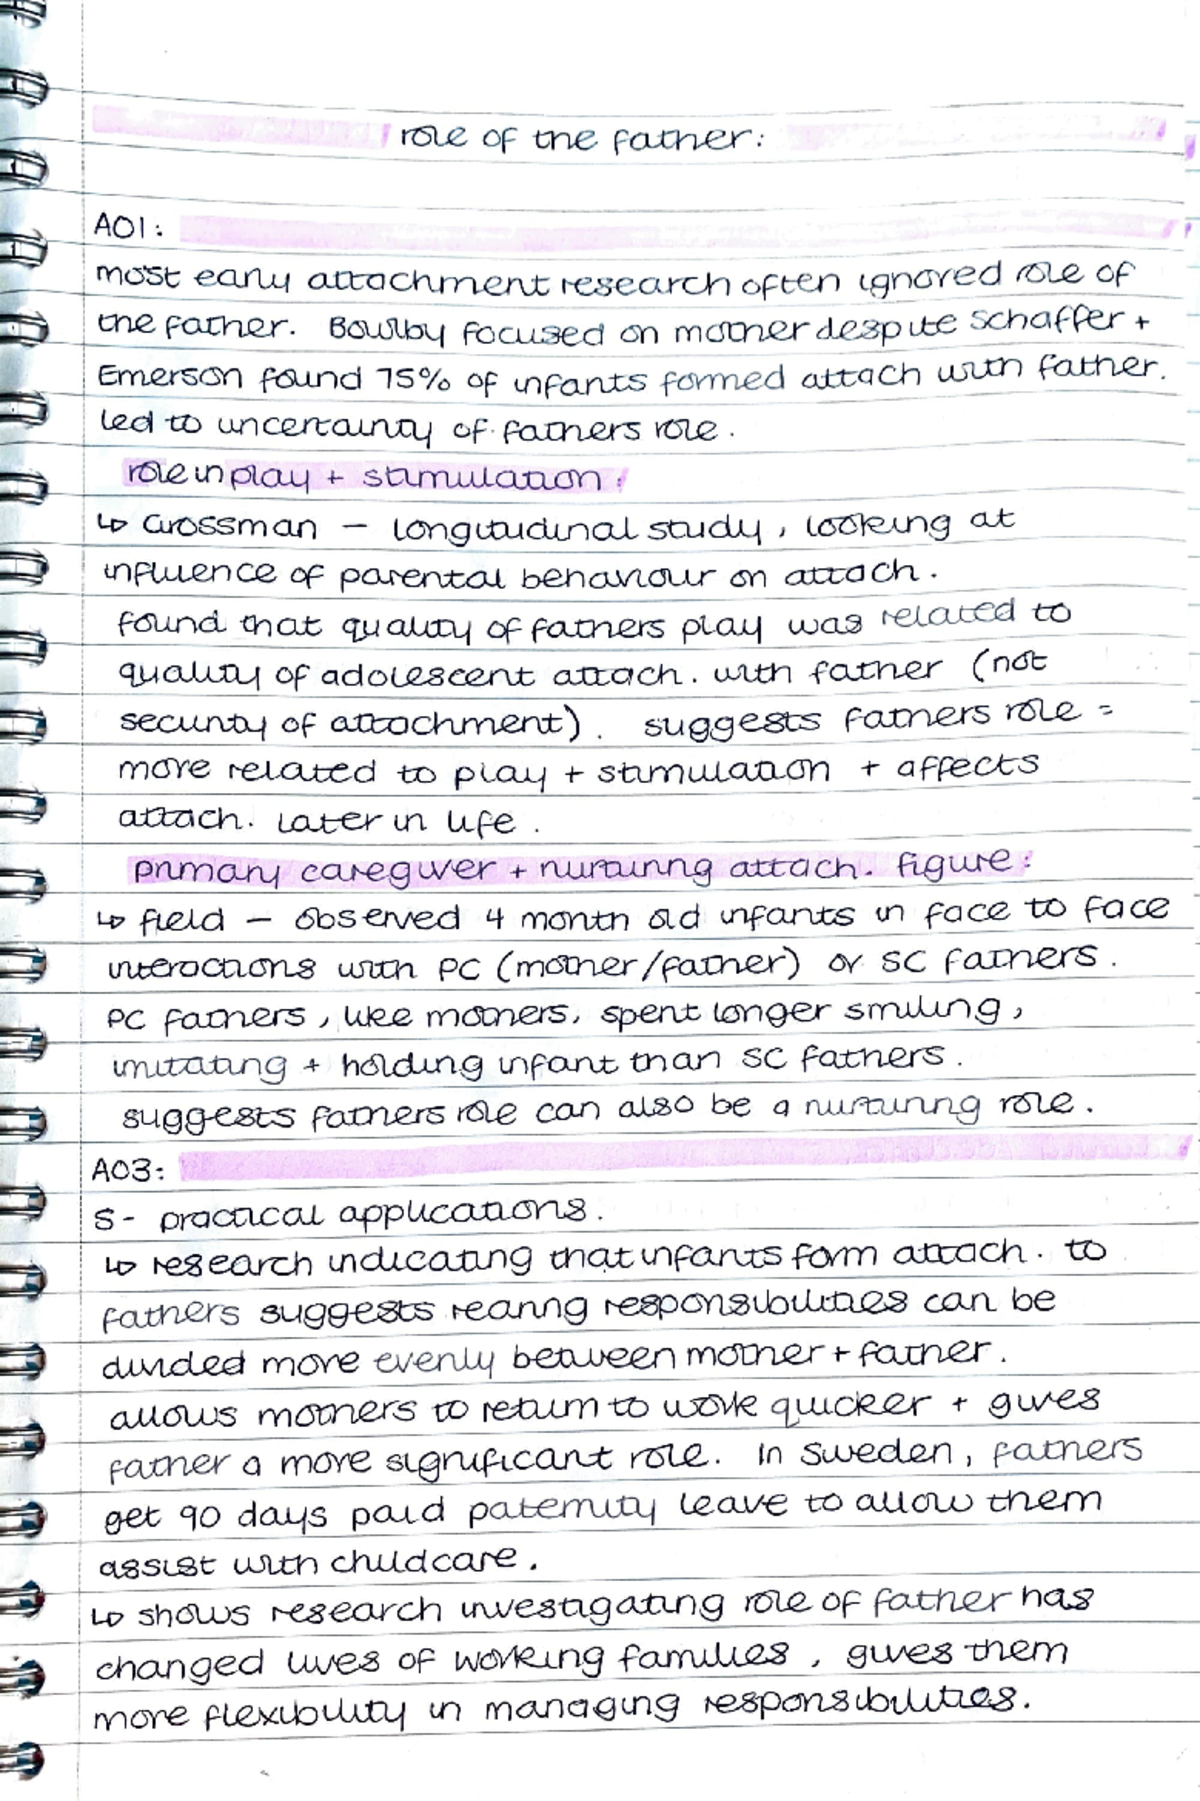 role of the father:
AO1:
most early attachment research often ignored role of
the father. Bowlby focused on mother despite Schaffer +
Emerson found 75% of infants formed attach with father.
led to uncertainty of fathers role.
role in play + stimulation:
↳ Grossman – longitudinal study, looking at
influence of parental behaviour on attach.
found that quality of fathers play was related to
quality of adolescent attach. with father (not
security of attachment). suggests fathers role =
more related to play + stimulation + affects
attach. later in life.
primary caregiver + nurturing attach. figure:
↳ field – observed 4 month old infants in face to face
interactions with PC (mother/father) or SC fathers.
PC fathers, like mothers, spent longer smiling,
imitating + holding infant than SC fathers.
suggests fathers role can also be a nurturing role.
AO3:
S- practical applications.
↳ research indicating that infants form attach. to
fathers suggests rearing responsibilities can be
divided more evenly between mother + father.
allows mothers to return to work quicker + gives
father a more significant role. In Sweden, fathers
get 90 days paid paternity leave to allow them
assist with childcare.
↳ shows research investigating role of father has
changed lives of working families, gives them
more flexibility in managing responsibilities.